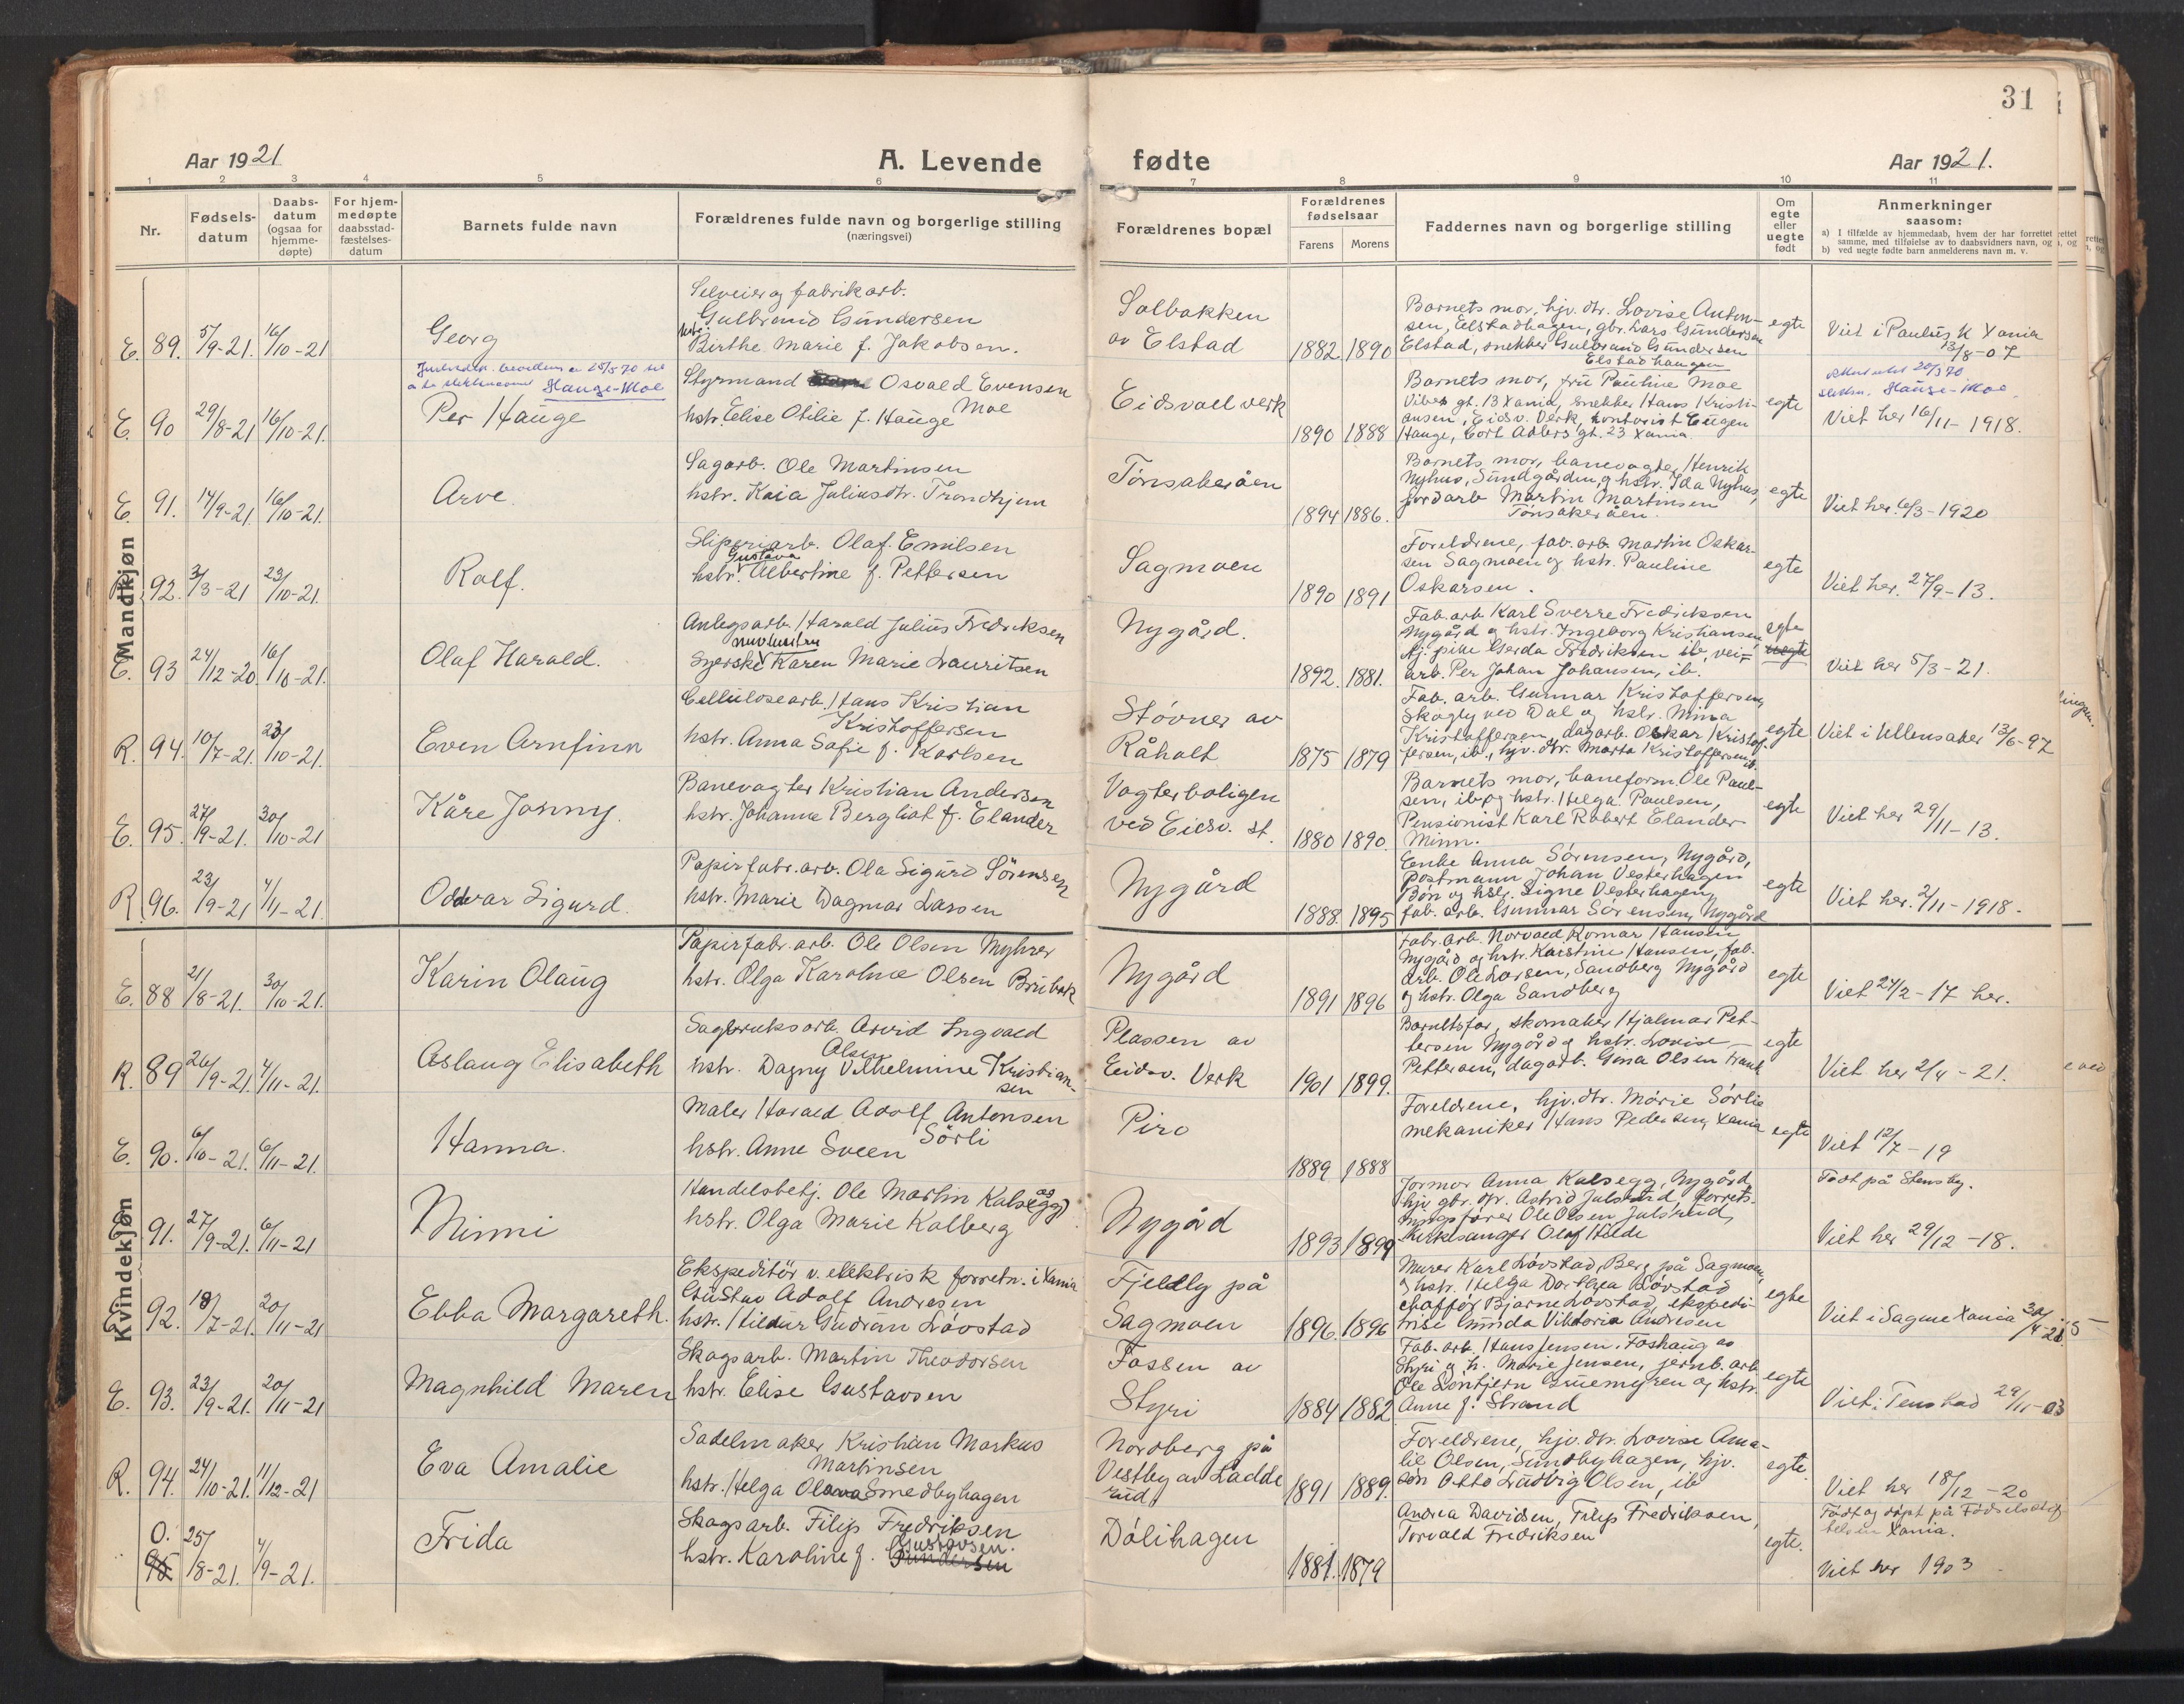 31
Aar 1921
A. Levende
fødte
Aar 1921.
1 2 3 4 5 6 7 8 9 10 11
Nr.
Fødsels-
datum
Daabs-
datum
(ogsaa for
hjemme-
døpte)
For hjem-
medøpte
daabsstad-
fæstelses-
datum
Barnets fulde navn
Forældrenes fulde navn og borgerlige stilling
(næringsvei)
Forældrenes bopæl
Forældrenes
fødselsaar
Farens Morens
Faddernes navn og borgerlige stilling
Om
egte
eller
uegte
født
Anmerkninger
saasom:
a) I tilfælde av hjemmedaab, hvem der har forrettet
samme, med tilføielse av to daabsvidners navn, og
b) ved uegte fødte barn anmelderens navn m. v.
Mandkjøn
E. 89. 5/9-21. 16/10-21
Georg
Selveier og fabrikarb.
Gulbrand Gundersen
Birthe Marie f. Jakobsen.
Solbakken
av Elstad
1882. 1890
Barnets mor, hjv. dtr. Lovise Anton-
sen, Elstadhagen, gbr. Lars Gundersen
Elstad, snekker Gulbrand Gundersen
Elstadhaugen
egte
Viet i Paulus K Xania
13/8-07
E. 90 29/8-21 16/10-21.
Hauge-Moe
Per Hauge
Styrmand Osvald Evensen
Moe
hstr. Elise Otilie f. Hauge
Eidsvoll verk
1890 1888
Barnets mor, fru Pauline Moe
Vibes gt. 13 Xania, snekker Hans Kristi-
ansen, Eidsv. Verk, kontorist Eugen
Hauge, Cort Adlers gt. 23 Xania.
egte
Hauge-Moe
Viet her 16/11-1918.
E. 91. 14/9-21. 16/10-21.
Arve.
Sagarb. Ole Martinsen
hstr. Kaia Juliusdtr. Trondhjem
Tönsakeråen
1894 1886.
Barnets mor, banevagter Henrik
Nyhus, Sundgården, og hstr. Ida Nyhus,
jordarb Martin Martinsen
Tönsakeråen.
egte
Viet her. 6/3-1920
R. 92. 3/3-21 23/10-21.
Rolf.
Sliperiarb. Olaf Emilsen
Gustava
hstr. Albertine f. Pettersen
Sagmoen
1890 1891
Foreldrene, fab. arb. Martin Oskar-
sen Sagmoen og hstr. Pauline
Oskarsen.
egte
Viet her. 27/9-13.
E. 93 24/12-20. 16/10-21.
Olaf Harald.
Anlegsarb. Harald Julius Fredriksen
nuv. hustru
Syerske Karen Marie Lauritsen
Nygård.
1892. 1881.
Fab. arb Karl Sverre Fredriksen
Nygård og hstr. Ingeborg Kristiansen,
tj. pike Gerda Fredriksen ib, vei-
arb. Per Johan Johansen, ib.
egte
uegte
Viet her 5/3-21.
R. 94. 10/7-21. 23/10-21.
Even Arnfinn
Cellulosearb. Hans Kristian
Kristoffersen
hstr. Anna Sofie f. Karlsen
Stövner av
Råholt
1875 1879
Fab. arb. Gunnar Kristoffersen,
Skogly ved Dal og hstr. Mina
Kristoffersen, dagarb. Oskar Kristof-
fersen, ib., hjv. dtr. Marta Kristoffersen ib.
egte
Viet i Ullensaker 13/6-97
E. 95. 27/9-21. 30/10-21
Kåre Jonny.
Banevagter Kristian Andersen
hstr. Johanne Bergliot f. Elander
Vagterboligen
ved Eidsv. st.
1880 1890.
Barnets mor, baneform. Ole Paul-
sen, ib. og hstr. Helga Paulsen,
Pensionist Karl Robert Elander
Minn.
egte
Viet her 29/11-13.
R. 96. 23/9-21 4/11-21.
Oddvar Sigurd.
Papirfabr. arb. Ola Sigurd Sörensen
hstr. Marie Dagmar Larsen
Nygård
1888. 1895
Enke Anna Sörensen, Nygård,
Postmann Johan Vesterhagen
Bön og hstr. Signe Vesterhagen,
fab. arb. Gunnar Sörensen, Nygård
egte
Viet her. 2/11-1918.
Kvindekjøn
E. 88 21/8-21. 30/10-21.
Karin Olaug
Papirfabr. arb. Ole Olsen Myhrer
hstr. Olga Karoline Olsen Brubak
Nygård
1891 1896
Fabr. arb. Norvald Komar Hansen
Nygård og hstr. Karstine Hansen, fab.
arb. Ole Larsen, Sandberg Nygård
og hstr. Olga Sandberg
egte
Viet 24/2-17 her.
R. 89 26/9-21. 4/11-21.
Aslaug Elisabeth
Sagbruksarb. Arvid Ingvald
Olsen
hstr. Dagny Vilhelmine Kristian-
sen
Plassen av
Eidsv. Verk
1901 1899.
Barnets far, skomaker Hjalmar Pet-
tersen Nygård og hstr. Lovise
Pettersen, dagarb. Gina Olsen
egte
Viet her 2/4-21.
E. 90. 6/10-21. 6/11-21.
Hanna.
Maler Harald Adolf Antonsen
Sörli
hstr. Anne Sveen
Piro
1889 1888
Foreldrene, hjv. dtr. Marie Sörlie
mekaniker Hans Pedersen, Xania
egte
Viet 12/7-19
E. 91. 27/9-21. 6/11-21
Mimmi
Handelsbetj. Ole Martin Kalsegg
hstr. Olga Marie Kolberg
Nygård
1893 1899
Formor Anna Kalsegg, Nygård,
hjv gbr. dtr. Astrid Julsrud, forret-
ningsfører Ole Olsen Julsrud,
kirkesanger Olaf Hilde
Födt på Stensby.
Viet her 29/12-18.
E. 92. 18/7-21. 20/11-21
Ebba Margareth.
Ekspeditör v. elektrisk forretn. i Xania
Gustav Adolf Andresen
hstr. Hildur Gudrun Lövstad
Fjelly på
Sagmoen
1896. 1896
Murer Karl Lövstad, Berg på Sagmoen,
og hstr. Helga Dorthea Lövstad
chafför Bjarne Lövstad, ekspedi-
trise Gunda Viktoria Andresen
egte
Viet i Sagene Xania
E. 93. 23/9-21. 20/11-21
Magnhild Maren
Skogsarb. Martin Theodorsen
hstr. Elise Gustavsen
Fossen av
Styri
1884 1882
Fab. arb. Hans Jensen, Foshaug av
Styri og h. Marie Jensen, jernb. arb
Ole Löntjern Gruemyren og hstr.
Anne f. Strand
egte
Viet i Tenstad 29/11-03
R. 94. 24/10-21. 11/12-21
Eva Amalie
Sadelmaker Kristian Markus
Martinsen
hstr. Helga Olava Smedbyhagen
Nordberg på
Vestby av Ladde
rud
1891 1889.
Foreldrene, hjv. dtr. Lovise Ama-
lie Olsen, Sundbyhagen, hjv.
sön Otto Ludvig Olsen, ib
egte.
Viet her 18/12-20
O. 95 25/8-21. 4/9-21.
Frida
Skogsarb. Filip Fredriksen
Gustavsen.
hstr. Karoline f. Gundersen
Dölihagen
1881. 1879
Andrea Davidsen, Filip Fredriksen,
Torvald Fredriksen
egte.
Födt og döpt på Födselsstif
telsen Xania.
Viet her 1903